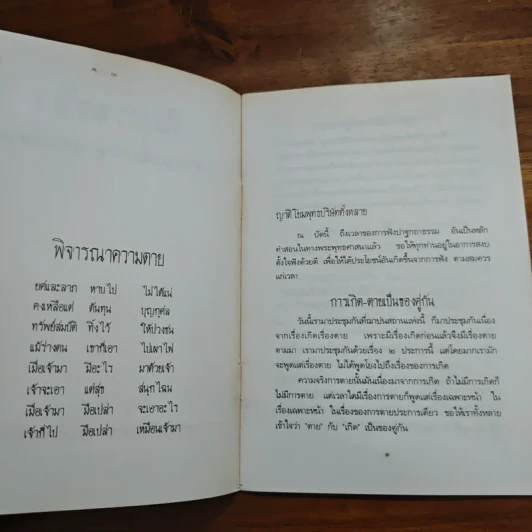 พิจารณาความตาย
ยศและลาภ หาบไป ไม่ได้แน่
คงเหลือแต่ ต้นทุน บุญกุศล
ทรัพย์สมบัติ ทิ้งไว้ ให้ปวงชน
แม้ร่างตน เขาก็เอา ไปเผาไฟ
เมื่อเจ้ามา มีอะไร มาด้วยเจ้า
เจ้าจะเอา แต่สุข สนุกไฉน
เมื่อเจ้ามา มือเปล่า จะเอาอะไร
เจ้าก็ไป มือเปล่า เหมือนเจ้ามา
ญาติโยมพุทธบริษัททั้งหลาย
ณ บัดนี้ ถึงเวลาของการฟังปาฐกถาธรรม อันเป็นหลัก
คำสอนในทางพระพุทธศาสนาแล้ว ขอให้ทุกท่านอยู่ในอาการสงบ
ตั้งใจฟังด้วยดี เพื่อให้ได้ประโยชน์อันเกิดขึ้นจากการฟัง ตามสมควร
แก่เวลา
การเกิด-ตายเป็นของคู่กัน
วันนี้เรามาประชุมกันที่ฌาปนสถานแห่งนี้ ก็มาประชุมกันเนื่อง
จากเรื่องเกิดเรื่องตาย เพราะมีเรื่องเกิดก่อนแล้วจึงมีเรื่องตาย
ตามมา เรามาประชุมกันด้วยเรื่อง ๒ ประการนี้ แต่โดยมากเรามัก
จะพูดแต่เรื่องตาย ไม่ได้พูดโยงไปถึงเรื่องของการเกิด
ความจริงการตายนั้นมันเนื่องมาจากการเกิด ถ้าไม่มีการเกิดก็
ไม่มีการตาย แต่เวลาใดมีเรื่องการตายก็พูดแต่เรื่องเฉพาะหน้า ใน
เรื่องเฉพาะหน้า ในเรื่องของการตายประการเดียว ขอให้เราทั้งหลาย
เข้าใจว่า "ตาย" กับ "เกิด" เป็นของคู่กัน